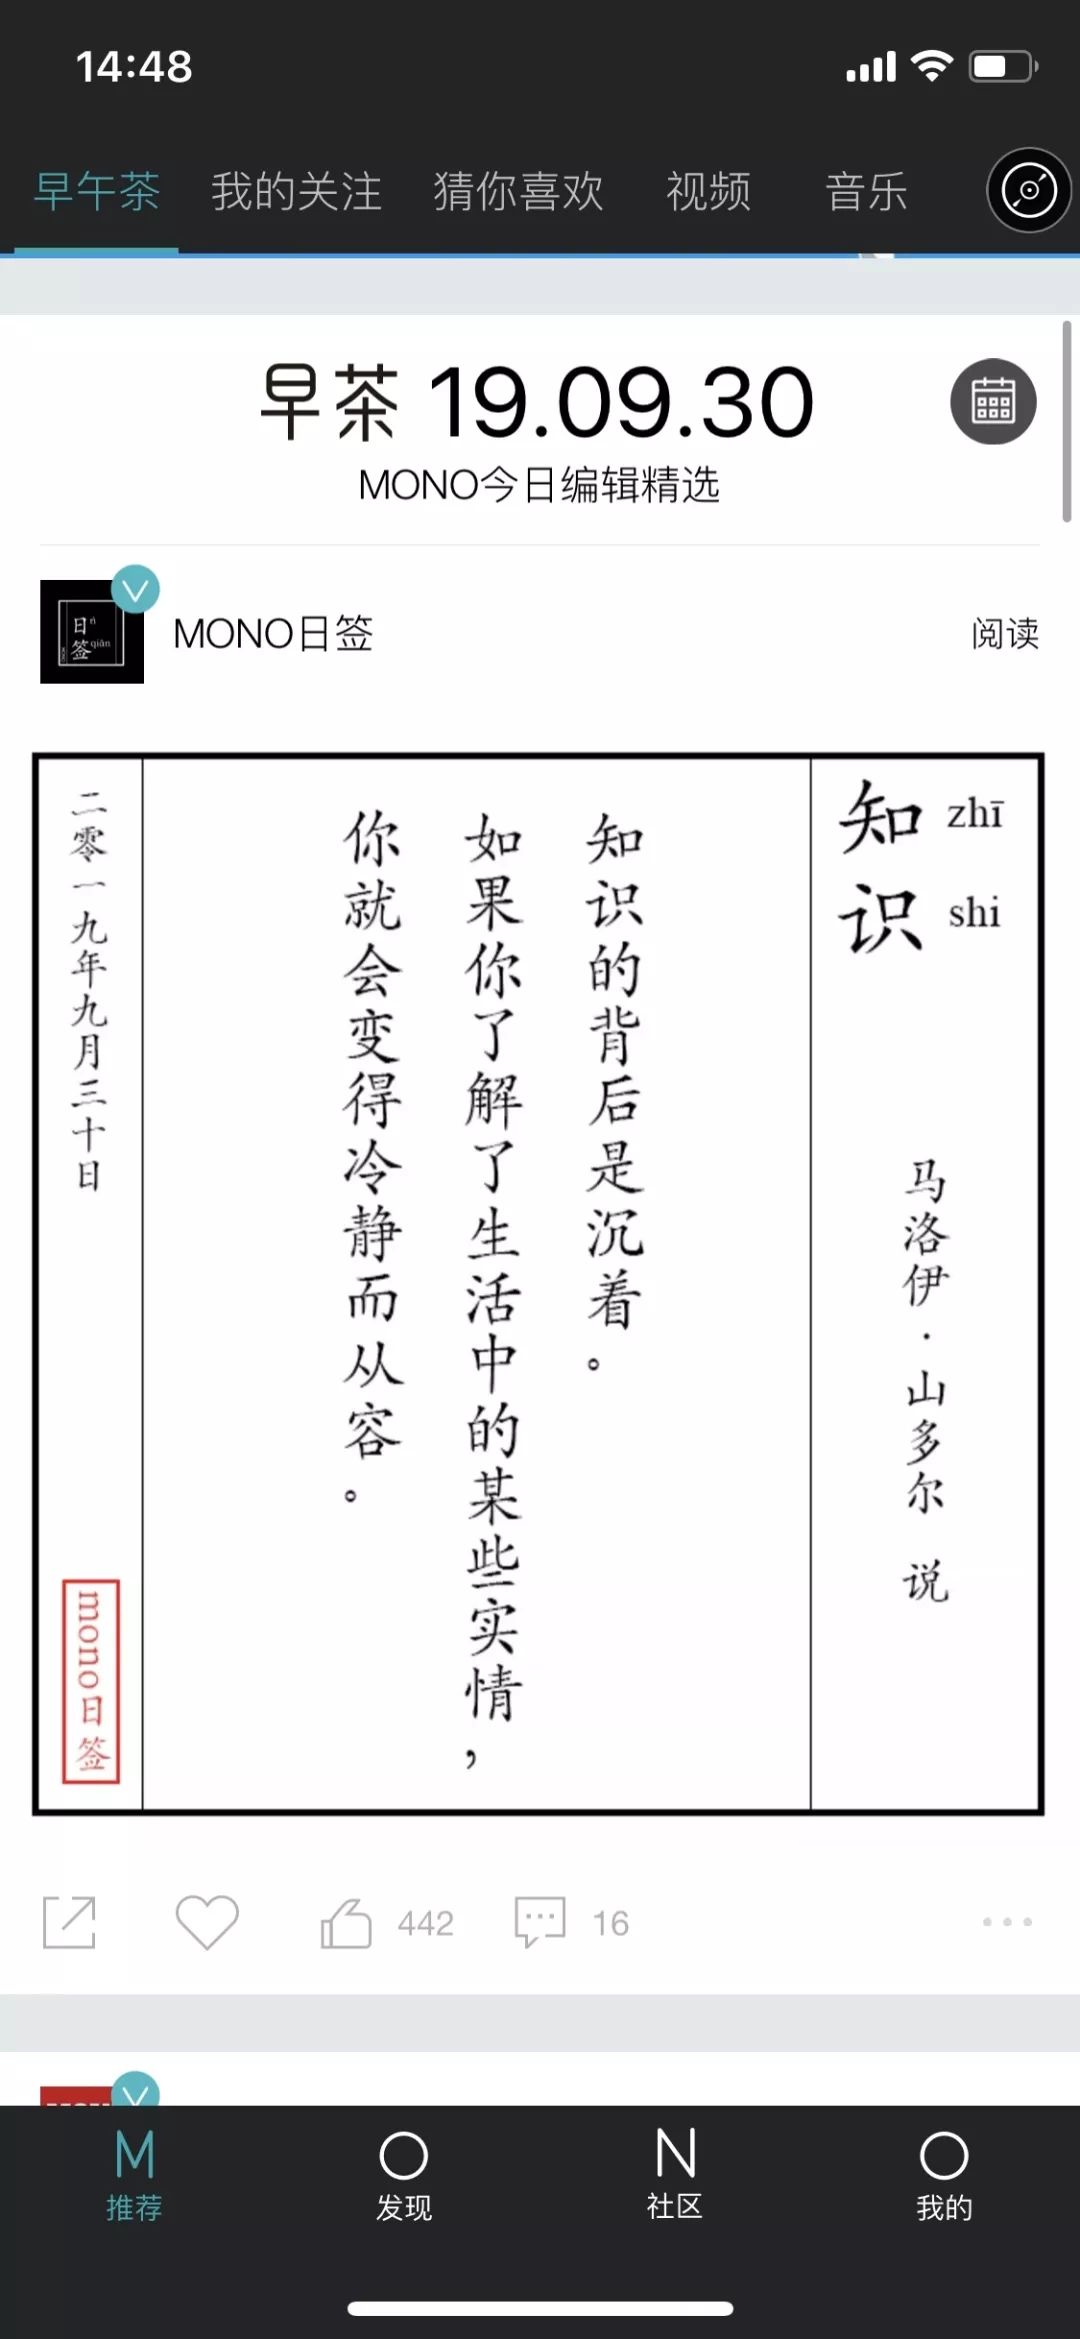 14:48
早午茶 我的关注 猜你喜欢 视频 音乐
早茶 19.09.30
MONO今日编辑精选
日 rì
签 qiān
MONO日签
阅读
知 zhī
识 shi
马洛伊·山多尔 说
知识的背后是沉着。
如果你了解了生活中的某些实情，
你就会变得冷静而从容。
二零一九年九月三十日
mono日签
442
16
M O N O
推荐 发现 社区 我的